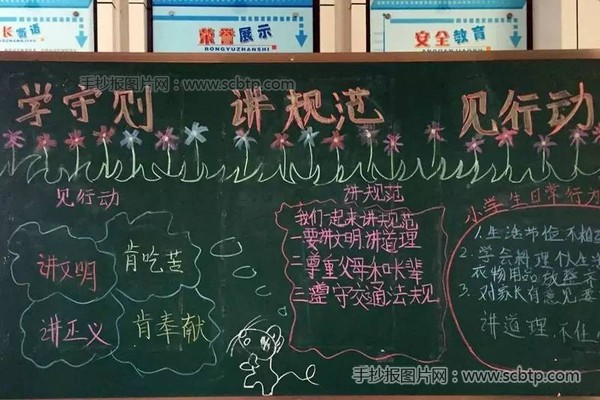 长寄语
荣誉展示
RONGYUZHANSHI
安全教育
手抄报图片网：www.scbtp.com
学守则 讲规范 见行动
见行动
讲文明
肯吃苦
讲正义
肯奉献
讲规范
我们一起来讲规范
一要讲文明讲道理
二尊重父母和长辈
三遵守交通法规
小学生日常行为
1.生活节
2.学会料理
衣物用品放整齐
3.对家长有意见要
讲道理,不任
手抄报图片网：www.scbtp.com